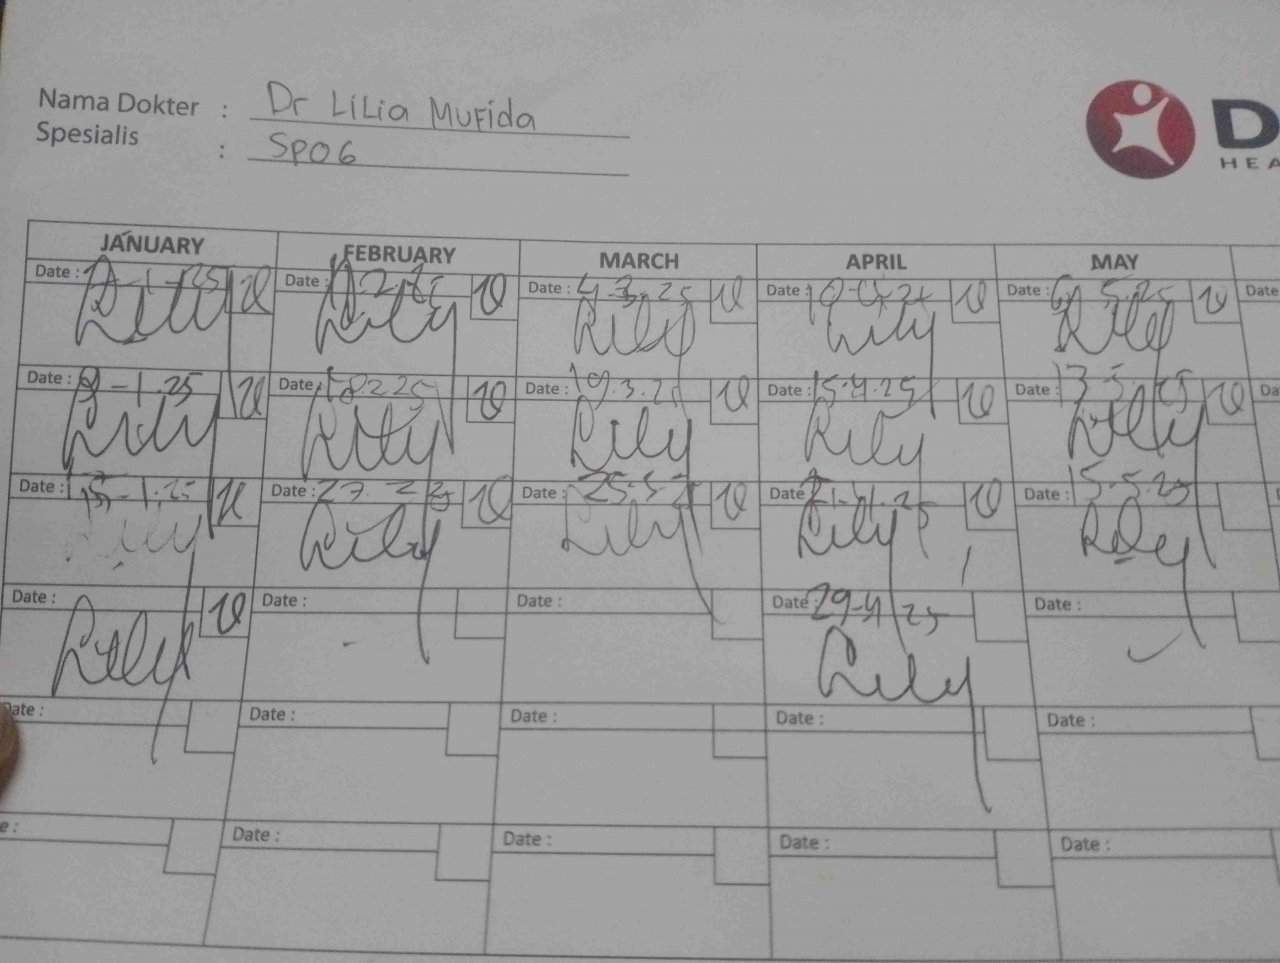 Nama Dokter : Dr Lilia Mufida
Spesialis : SPOG
D
HEA
JANUARY FEBRUARY MARCH APRIL MAY
Date : Date : Date : 4-3.25 Date : Date : 5.25 Date
Lily Lily Lily Lily Lily
Date : 8-1.25 Date : 18.2.25 Date : 19.3.25 Date : 15.4.25 Date : 13-5-25 Da
Lily Lily Lily Lily Lily
Date : 15-1.25 Date : 27.2.25 Date : 25.3.25 Date : 21.4.25 Date : 15-5.25
Lily Lily Lily Lily Lily
Date : Date : Date : Date : 29-4 25 Date :
Lily Lily
Date : Date : Date : Date : Date :
e : Date : Date : Date : Date :